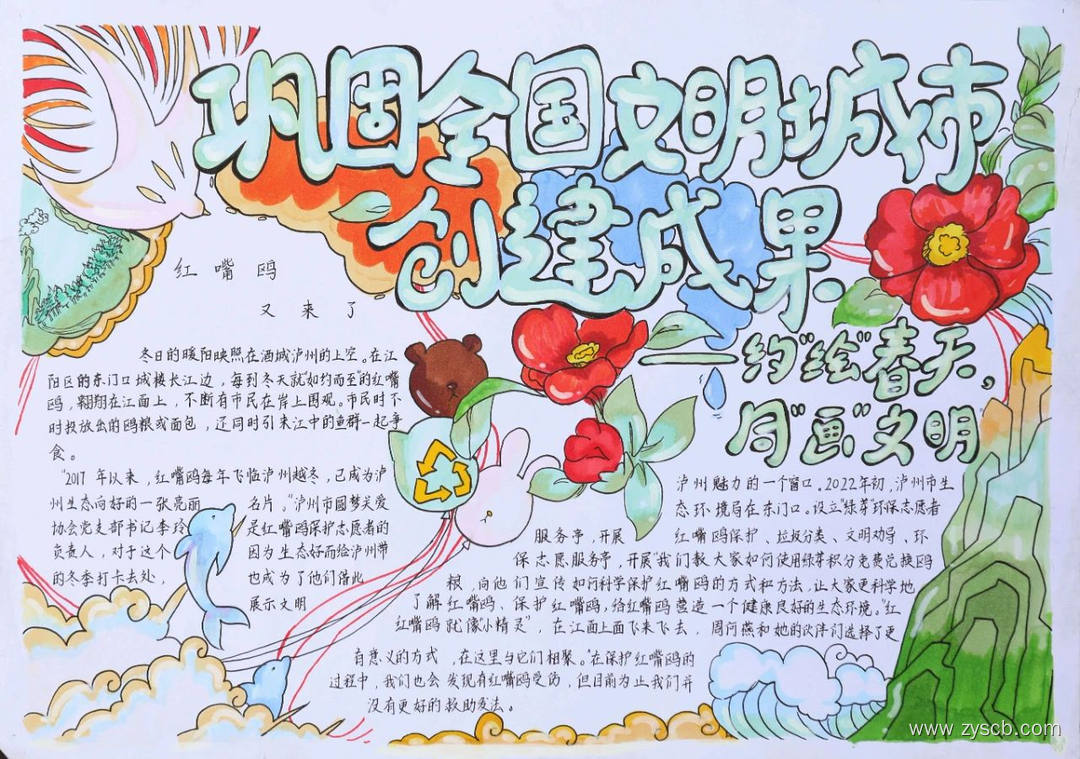 巩固全国文明城市
创建成果
——约“绘”春天，
同“画”文明
红嘴鸥
又来了
冬日的暖阳映照在酒城泸州的上空。在江
阳区的东门口城楼长江边，每到冬天就如约而至的红嘴
鸥，翱翔在江面上，不断有市民在岸上围观。市民时不
时投放出的鸥粮或面包，还同时引来江中的鱼群一起争
食。
“2017年以来，红嘴鸥每年飞临泸州越冬，已成为泸
州生态向好的一张亮丽名片。”泸州市圆梦关爱
协会党支部书记李玲是红嘴鸥保护志愿者的
负责人，对于这个因为生态好而给泸州带
的冬季打卡去处，也成为了他们借此
展示文明
泸州魅力的一个窗口。2022年初，泸州市生
态环境局在东门口。设立“绿芽”环保志愿者
服务亭，开展红嘴鸥保护、垃圾分类、文明劝导、环
保志愿服务亭，开展“我们教大家如何使用绿芽积分免费兑换鸥
粮，向他们宣传如何科学保护红嘴鸥的方式和方法，让大家更科学地
了解红嘴鸥、保护红嘴鸥，给红嘴鸥营造一个健康良好的生态环境。”红
红嘴鸥就像“小精灵”，在江面上面飞来飞去，周问燕和她的伙伴们选择了更
有意义的方式，在这里与它们相聚。“在保护红嘴鸥的
过程中，我们也会发现有红嘴鸥受伤，但目前为止我们并
没有更好的救助发法。
www.zyscb.com